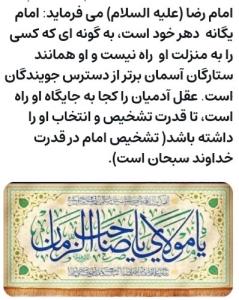 امام رضا (علیه السلام) می فرماید: امام
یگانه دهر خود است، به گونه ای که کسی
را به منزلت او راه نیست و او همانند
ستارگان آسمان برتر از دسترس جویندگان
است. عقل آدمیان را کجا به جایگاه او راه
است، تا قدرت تشخیص و انتخاب او را
داشته باشد( تشخیص امام در قدرت
خداوند سبحان است).
یا مولای یا صاحب الزمان